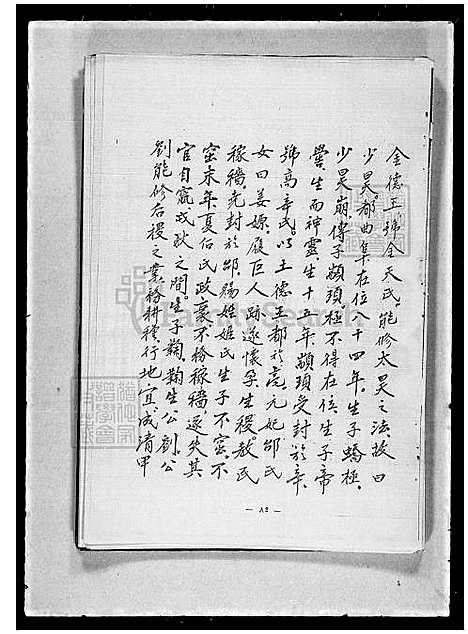 金德王，號金天氏，能修太昊之法，故曰
少昊，都曲阜，在位八十四年，生子蟜極，
少昊崩，傳子顓頊。極不得在位，生子帝
嚳，生而神靈，生十五年，顓頊受封於辛，
號高辛氏，以土德王，都於亳，元妃邰氏
女曰姜嫄，履巨人跡遂懷孕，生稷，教民
稼穡，堯封於邰，賜姓姬氏，生子不窋，不
窋末年，夏后氏政衰，不務稼穡，遂失其
官，自竄戎狄之間。生子鞠，鞠生公劉，公
劉能修后稷之業，務耕種，行地宜，成清甲
— 82 —
FamilySearch